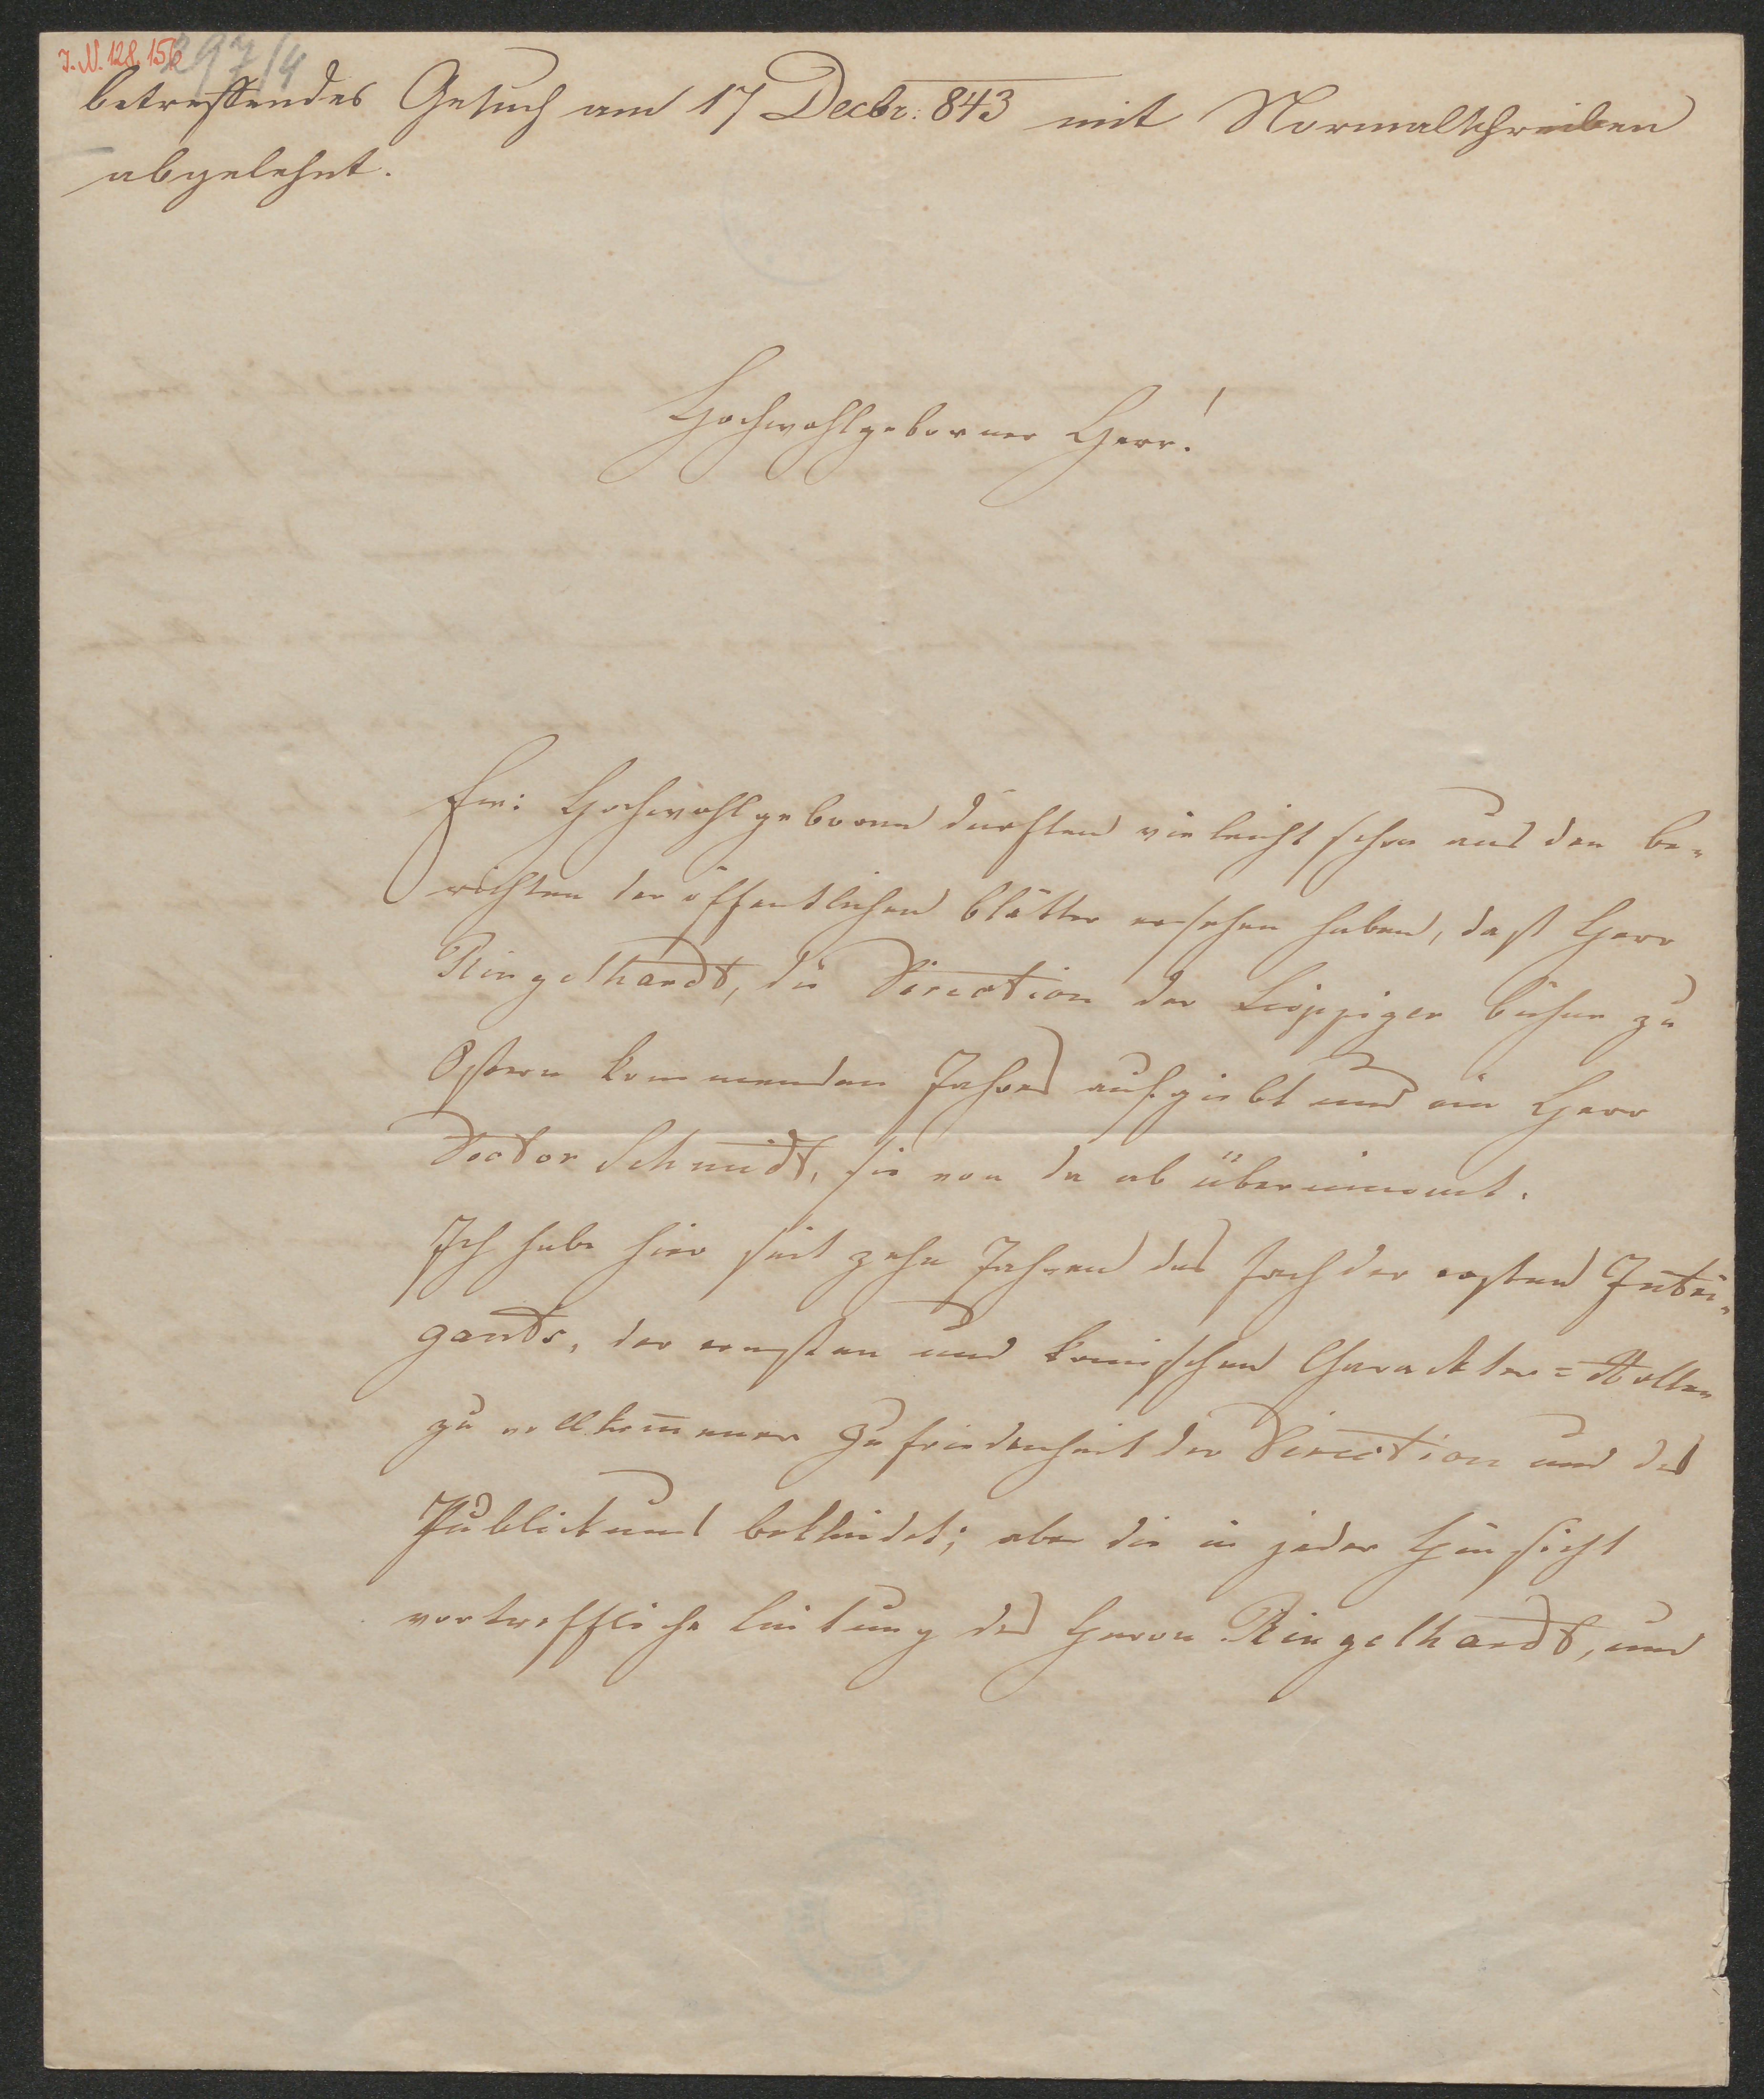 I. N. 128.156
297/4
betreffendes Gesuch am 17 Decbr: 843 mit Normalschreiben
abgelehnt.
Hochwohlgeborner Herr!
Ew: Hochwohlgeboren durften vieleicht schon aus den be-
richten der öffentlichen blätter ersehen haben, daß Herr
Ringelhardt, die Direction der Leipziger bühne zu
Ostern kommenden Jahres aufgiebt und ein Herr
Doctor Schmidt, sie von da ab übernimmt.
Ich habe hier seit zehn Jahren das Fach der ersten Intri-
gants, der ernsten und komischen Charackter=Rollen
zu vollkom̅ener Zufriedenheit der Direction und des
Publickums bekleidet; aber die in jeder Hinsicht
vortreffliche leitung des Herrn Ringelhardt, und